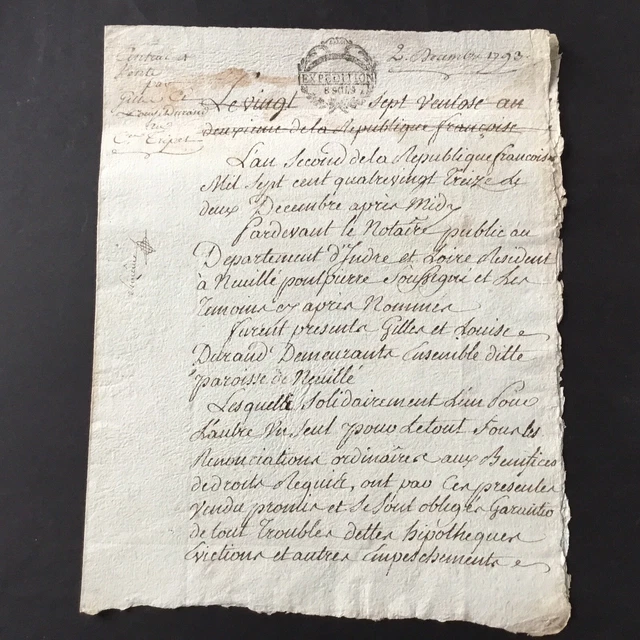 Contrat de
Vente
par
Gilles et
Louise Durand
au
Cn
EXPEDITION
8 SOLS
2. Decembre 1793.
Le vingt sept ventose an
deuxieme de la Republique françoise
L'an second de la Republique francoise
Mil sept cent quatrevingt treize le
deux Decembre apres Midy
Pardevant le Notaire public au
Departement d'Indre et Loire Resident
à Neuillé pontpierre Soussigné et Les
Temoins cy apres Nommés
Furent presents Gilles et Louise
Durand Demeurants Ensemble ditte
paroisse de Neuillé
Lesquelle Solidairement L'un Pour
L'autre Un Seul pour Le tout Sous les
Renonciations ordinaires aux Benefices
de droits Requite, ont par Ces presentes
vendu promis et se sont obligés Garantir
de tout Troubles dettes hipotheques
Evictions et autres Empeschements